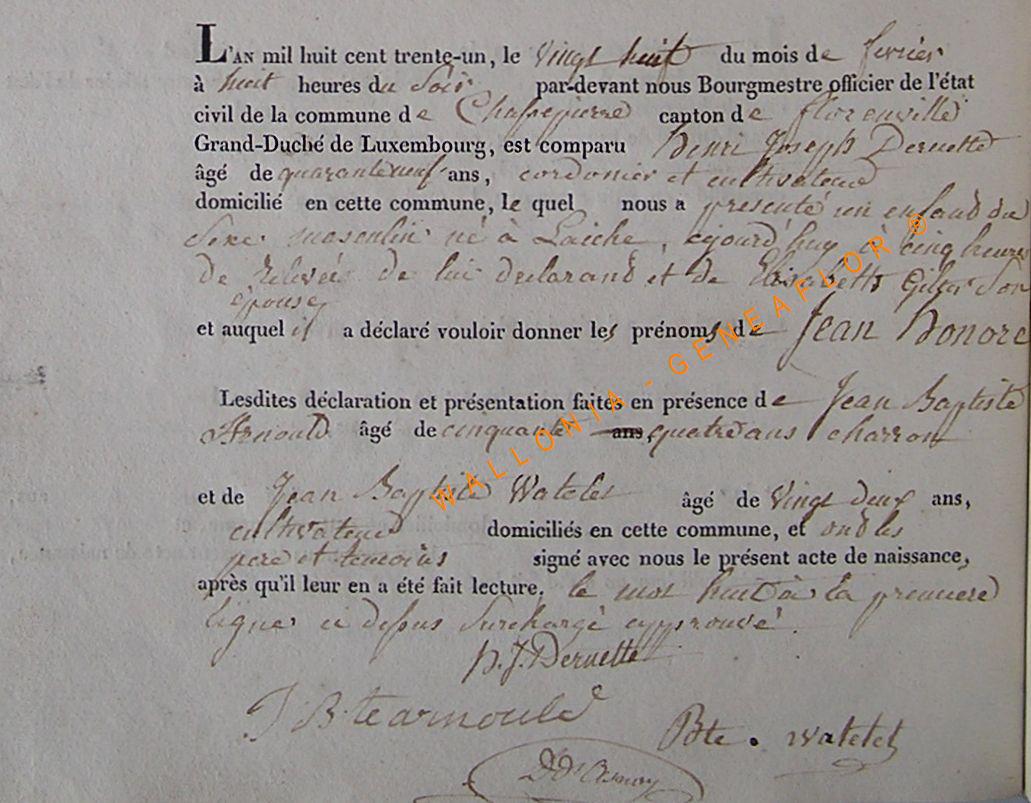 L'AN mil huit cent trente-un, le vingt huit du mois de fevrier
à huit heures du soir par-devant nous Bourgmestre officier de l'état
civil de la commune de Chassepierre canton de florenville
Grand-Duché de Luxembourg, est comparu henri Joseph Dernette
âgé de quaranteneuf ans, cordonier et cultivateur
domicilié en cette commune, le quel nous a presenté un enfant du
sexe masculin né à Laiche, cejourd'huy à cinq heures
de relevée de lui declarant et de Elisabeth Gillet son
épouse
et auquel il a déclaré vouloir donner les prénoms de Jean honoré
Lesdites déclaration et présentation faites en présence de Jean Baptiste
Arnould âgé de cinquante ans quatre ans charron
et de Jean Baptiste Watelet âgé de vingt deux ans,
cultivateur domiciliés en cette commune, et ont les
pere et temoins signé avec nous le présent acte de naissance,
après qu'il leur en a été fait lecture. le mot huit à la premiere
ligne ci dessus surchargé approuvé.
h. J. Dernette
J B.te arnould
Bte. watelet
WALLONIA - GENEAFLOR ®